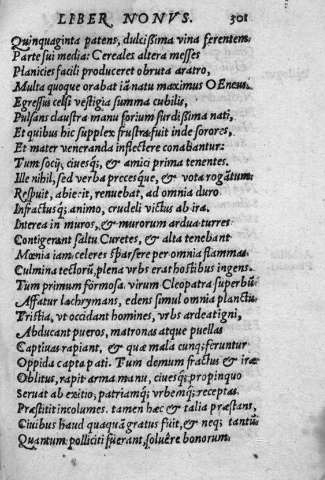 LIBER NONVS. 301
Quinquaginta patens, dulcißima vina ferentem.
Parte sui media: Cereales altera messes
Planicies facili produceret obruta aratro,
Multa quoque orabat iã natu maximus OEneus.
Egressus celsi vestigia summa cubilis,
Pulsans claustra manu forium surdißima nati,
Et quibus hic supplex frustra fuit inde sorores,
Et mater veneranda inflectere conabantur:
Tum socij, ciuesq́;, & amici prima tenentes.
Ille nihil, sed verba precesque, & vota rogãtum
Respuit, abiecit, renuebat, ad omnia duro
Infractusq́; animo, crudeli victus ab ira.
Interea in muros, & murorum ardua turres
Contigerant saltu Curetes, & alta tenebant
Mœnia iam celeres sparsere per omnia flammas
Culmina tectorũ, plena vrbs erat hostibus ingens.
Tum primum formosa virum Cleopatra superbũ
Affatur lachrymans, edens simul omnia planctu
Tristia, vt occidant homines, vrbs ardeat igni,
Abducant pueros, matronas atque puellas
Captiuas rapiant, & quæ mala cunq; feruntur
Oppida capta pati. Tum demum fractus & iræ
Oblitus, rapit arma manu, ciuesq́; propinquo
Seruat ab exitio, patriamq́; vrbemq́; receptas
Præstitit incolumes. tamen hæc & talia præstans,
Ciuibus haud quaquã gratus fuit, & neq; tantũ
Quantum polliciti fuerant, soluêre bonorum.